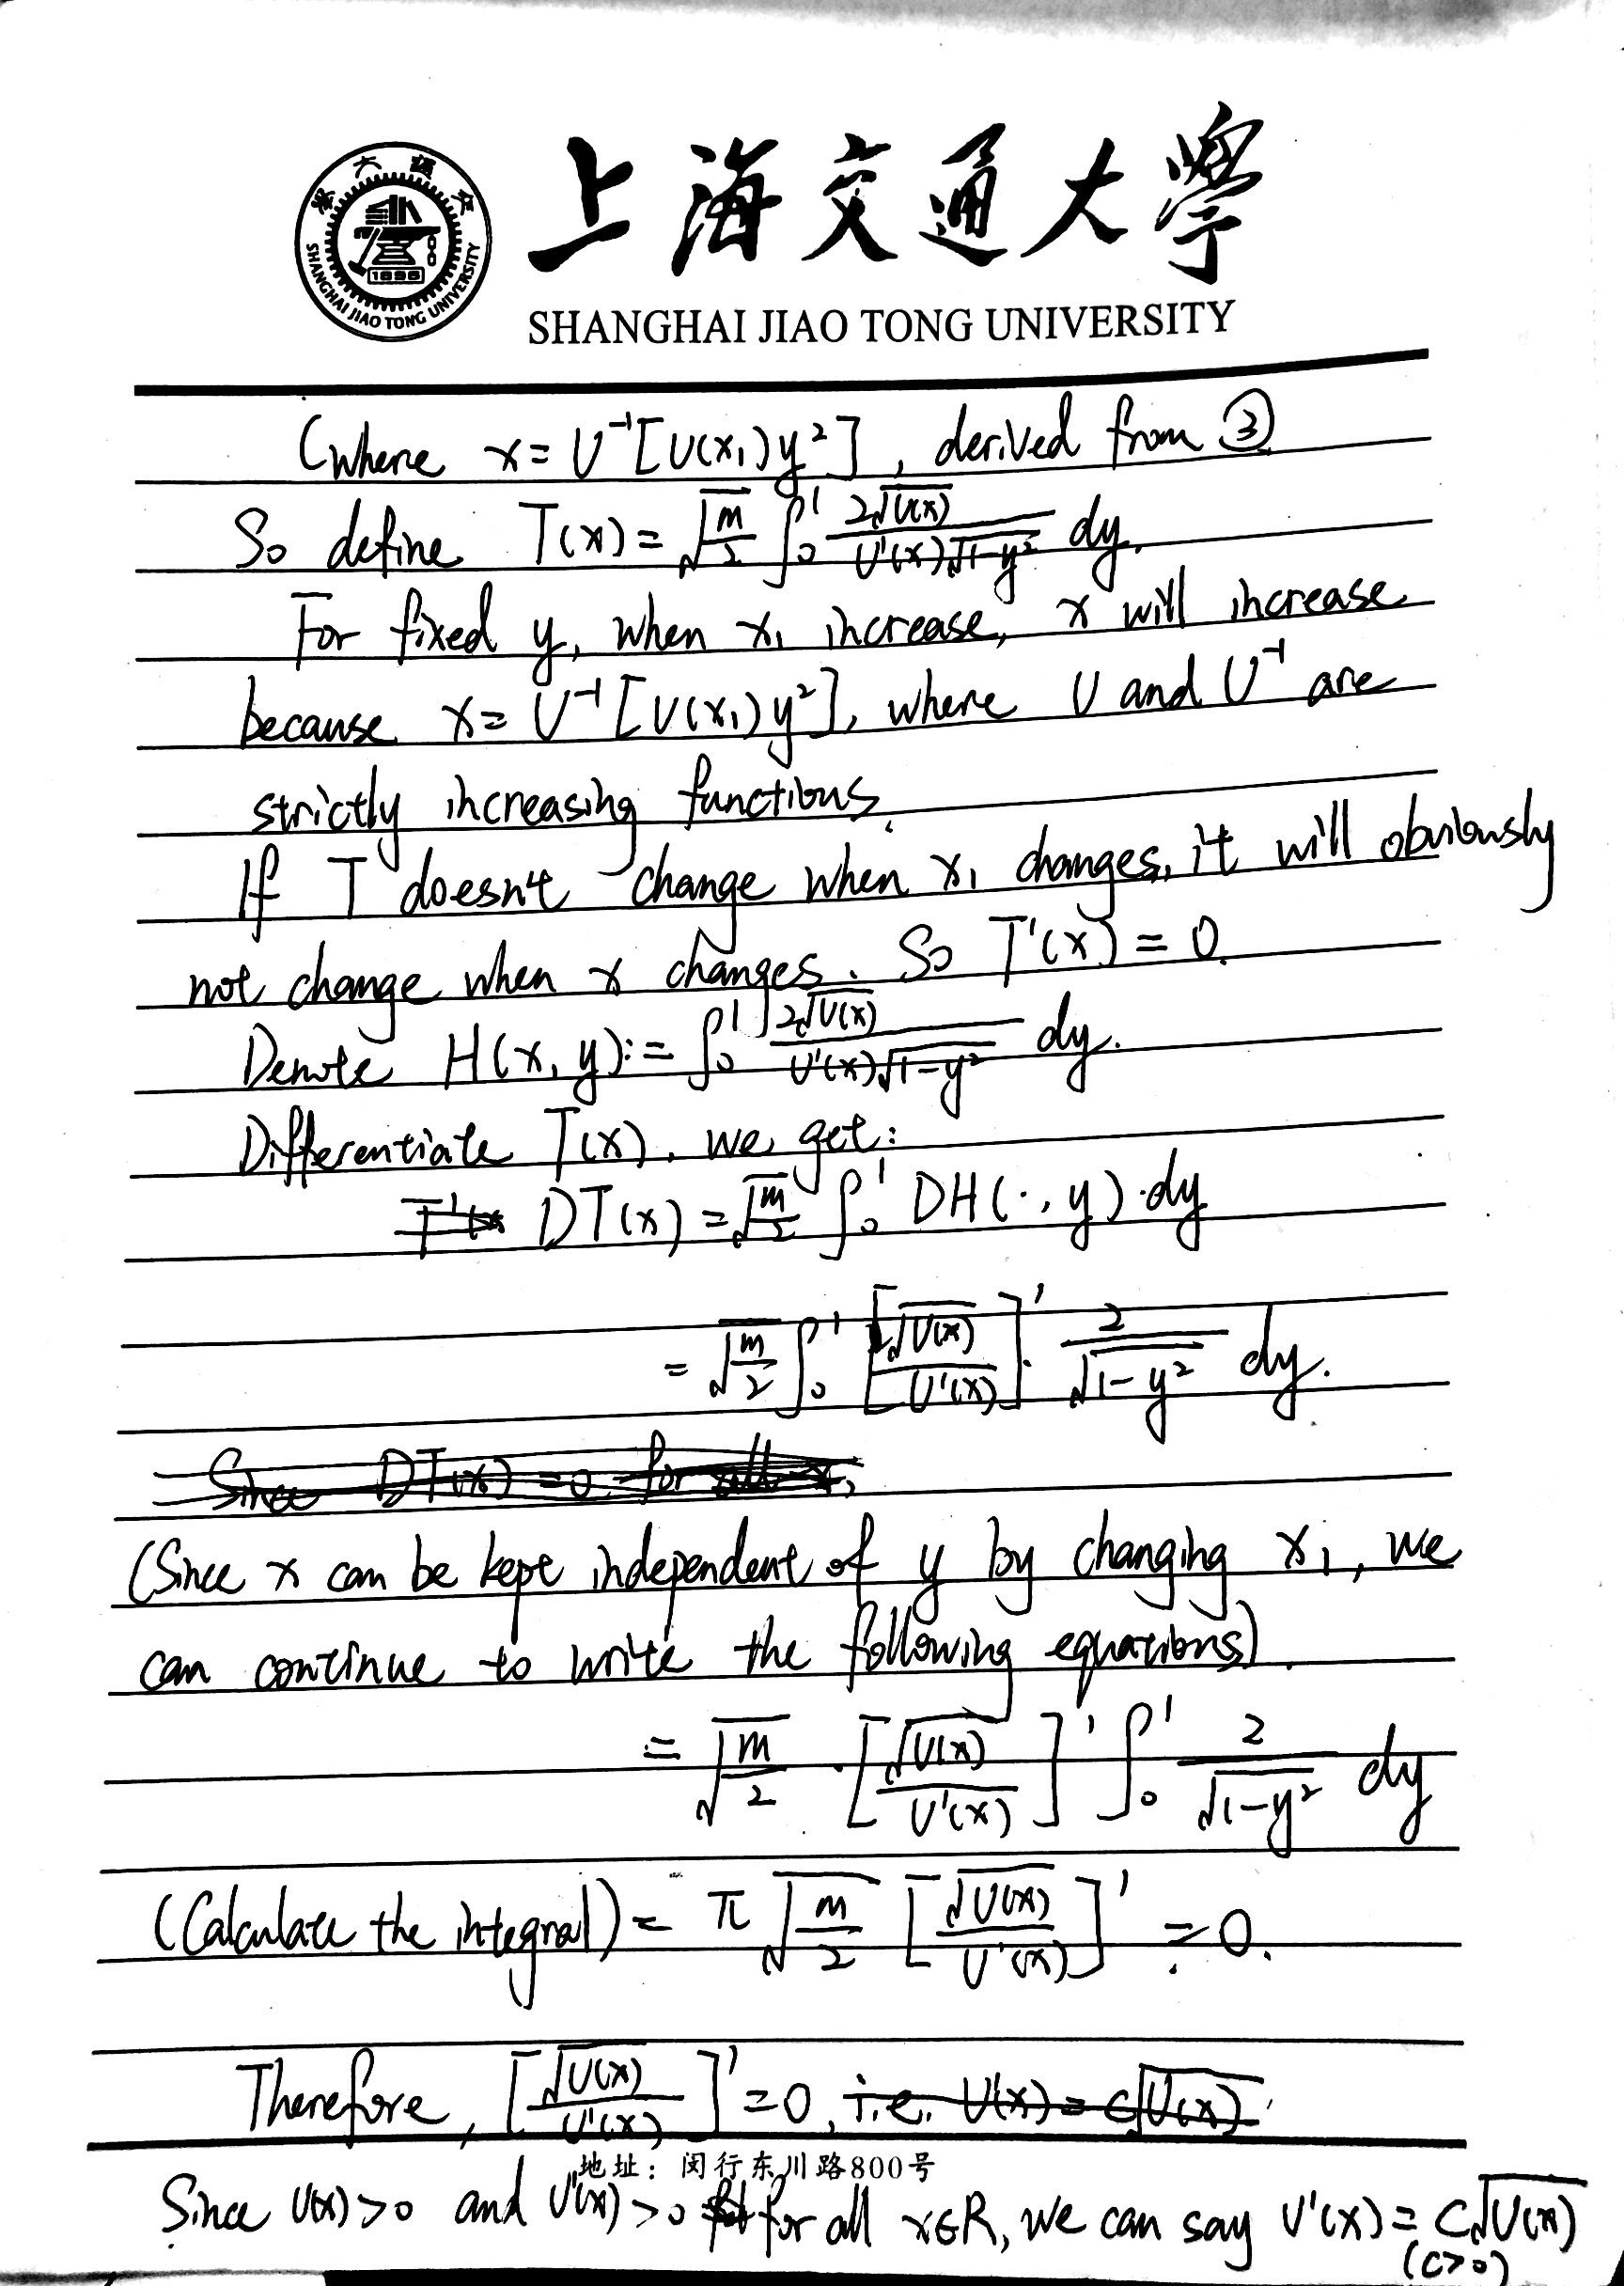 上海交通大學
SHANGHAI JIAO TONG UNIVERSITY
1896
SHANGHAI JIAO TONG UNIVERSITY
(where x = U⁻¹[U(x₁)y²], derived from ③
So define T(x) = √(m/2) ∫₀¹ 2√U(x) / (U'(x)√(1-y²)) dy.
For fixed y, when x₁ increase, x will increase
because x = U⁻¹[U(x₁)y²], where U and U⁻¹ are
strictly increasing functions.
If T doesn't change when x₁ changes, it will obviously
not change when x changes. So T'(x) = 0.
Denote H(x, y) := ∫₀¹ 2√U(x) / (U'(x)√(1-y²)) dy.
Differentiate T(x), we get:
T'(x DT(x) = √(m/2) ∫₀¹ DH(·, y)·dy
= √(m/2) ∫₀¹ [√U(x) / U'(x)]' · 2/√(1-y²) dy.
Since DT(x) = 0 for all x,
(Since x can be kept independent of y by changing x₁, we
can continue to write the following equations).
= √(m/2) · [√U(x) / U'(x)]' ∫₀¹ 2/√(1-y²) dy
(Calculate the integral) = π √(m/2) [√U(x) / U'(x)]' = 0.
Therefore, [√U(x) / U'(x)]' = 0, i.e. U'(x) = C√U(x)
地址: 闵行东川路800号
Since U(x) > 0 and U'(x) > 0 for all x∈R, we can say U'(x) = C√U(x)
(C>0)